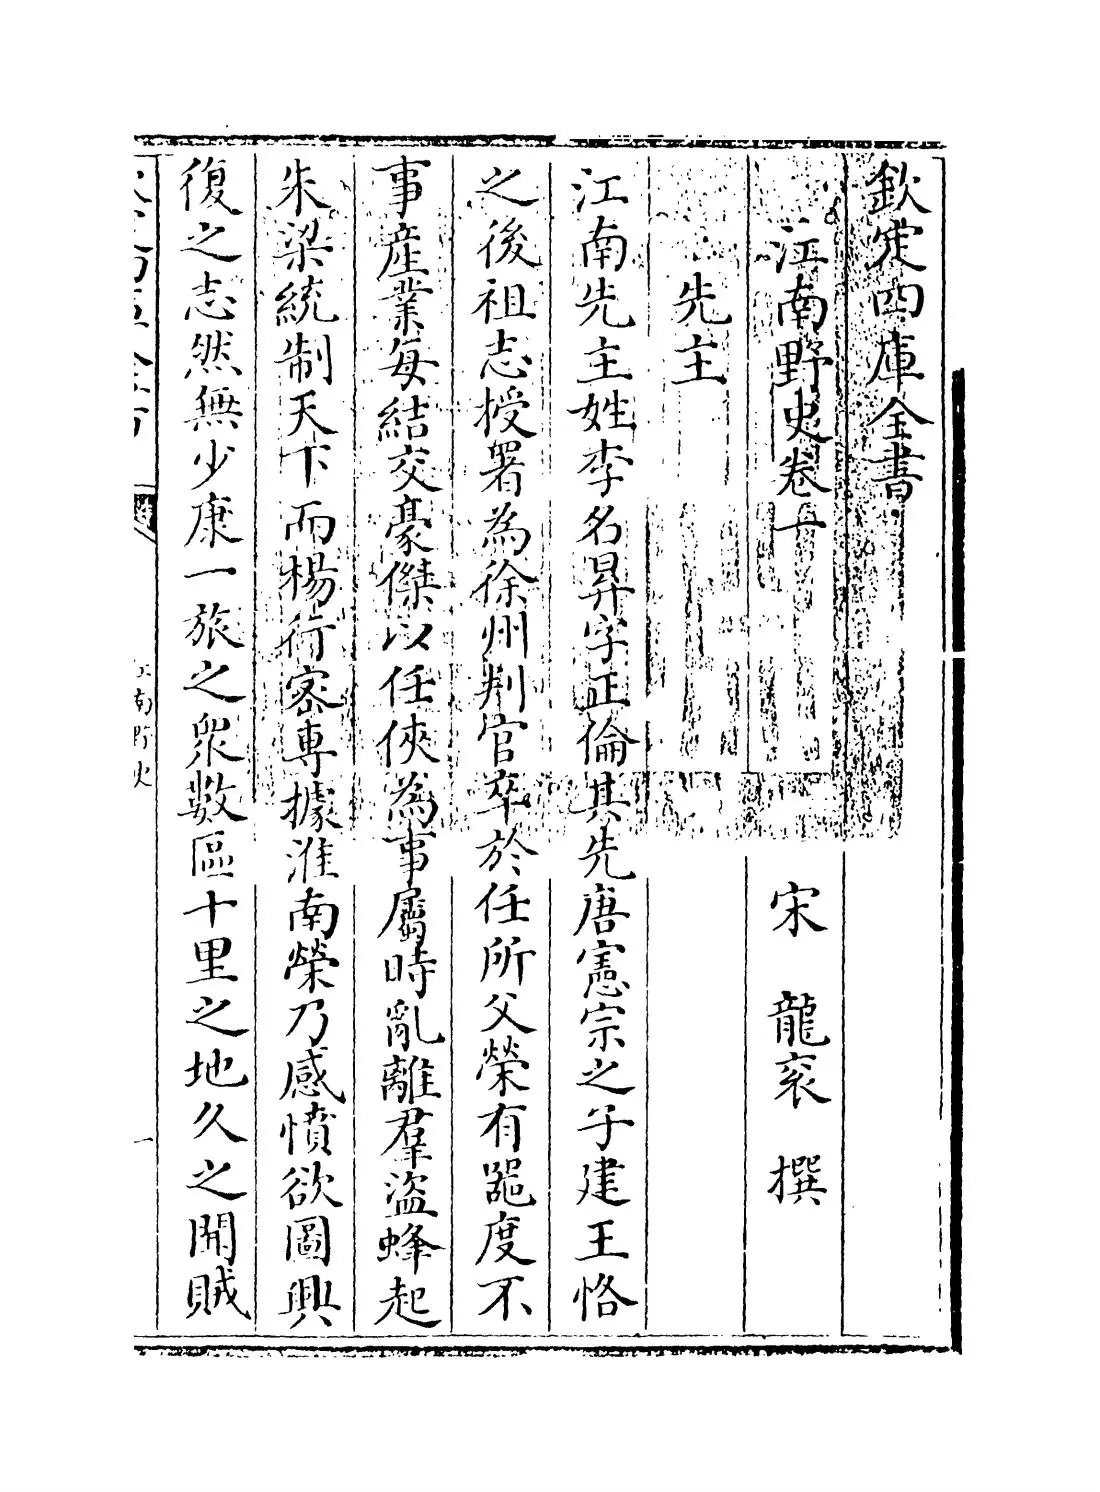 欽定四庫全書
江南野史卷一
宋 龍衮 撰
先主
江南先主姓李名昇字正倫其先唐憲宗之子建王恪
之後祖志授署為徐州判官卒於任所父榮有器度不
事產業每結交豪傑以任俠為事屬時亂離羣盜蜂起
朱梁統制天下而楊行密專據淮南榮乃感憤欲圖興
復之志然無少康一旅之衆數區十里之地久之開賊
江南野史
一